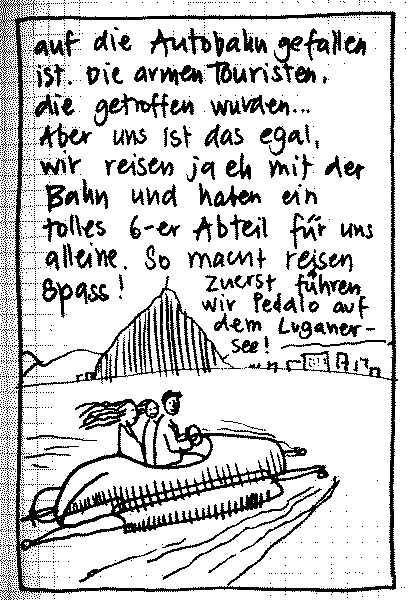 auf die Autobahn gefallen
ist. Die armen Touristen,
die getroffen wurden...
Aber uns ist das egal,
wir reisen ja eh mit der
Bahn und haben ein
tolles 6-er Abteil für uns
alleine. So macht reisen
Spass!
Zuerst führen
wir Pedalo auf
dem Luganer-
see!